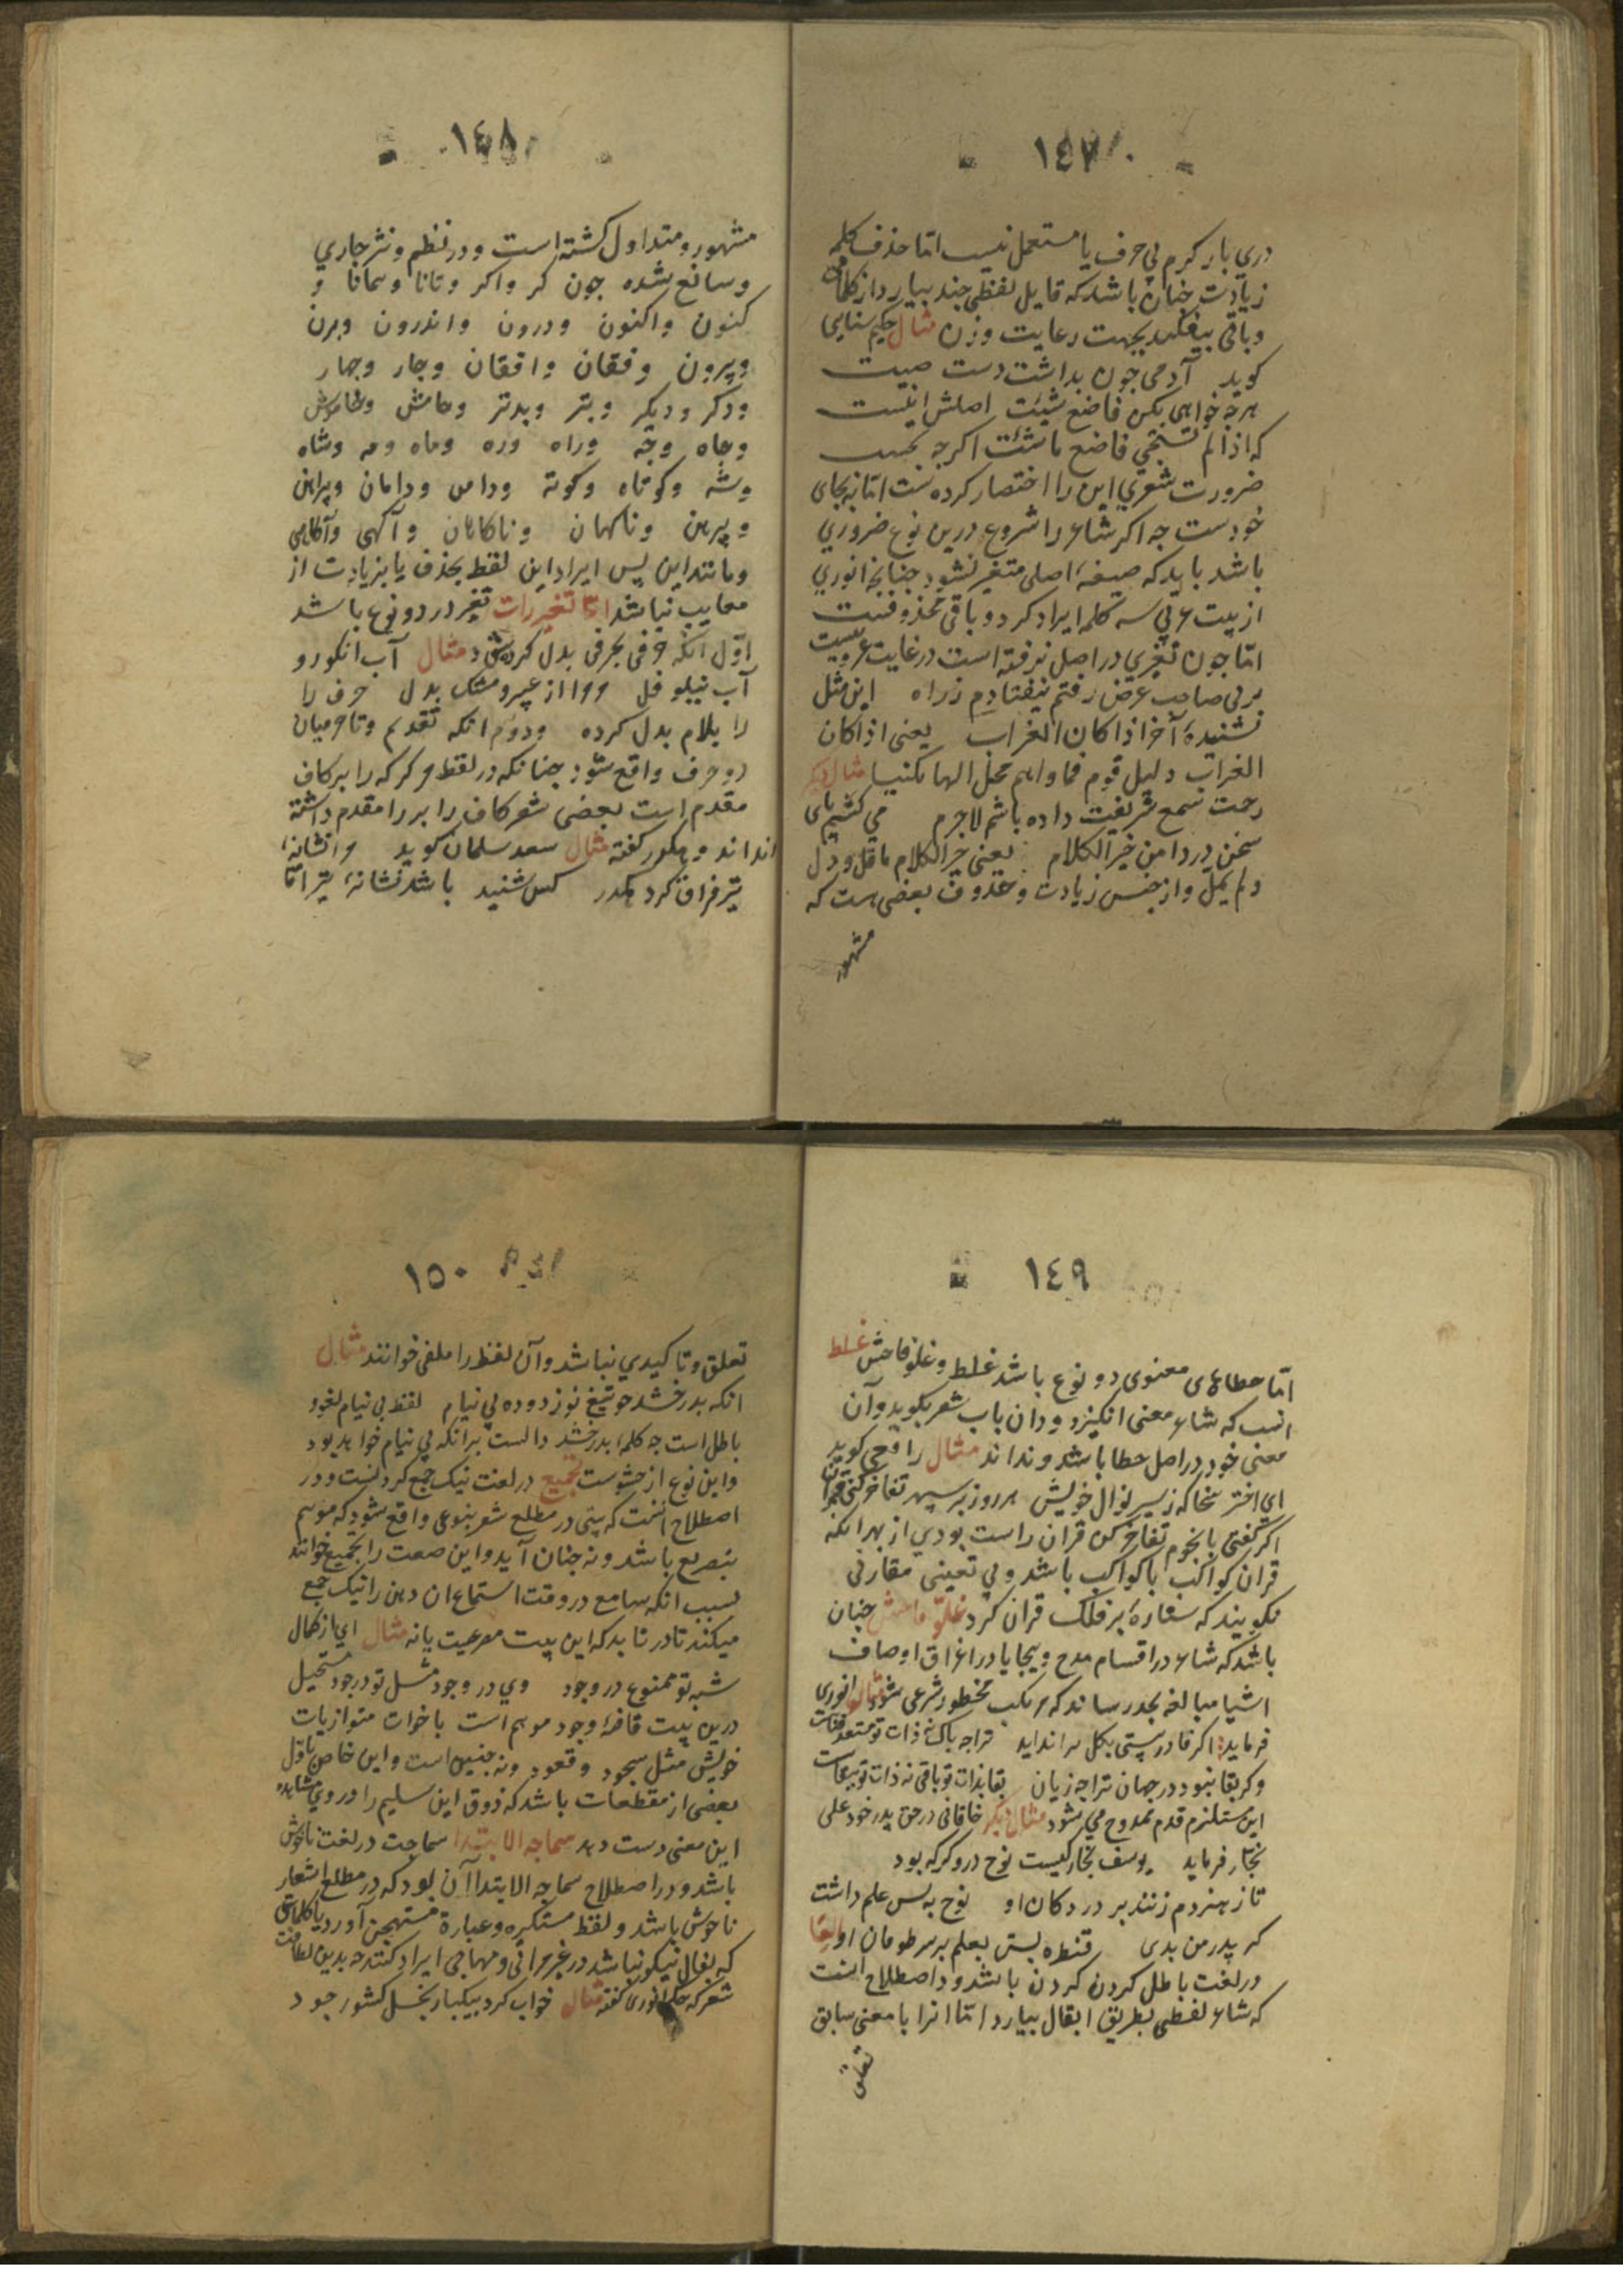 ١٤٧
دری بار کرم بی حرف یا مستعمل نیست امّا حذف کلمه
زیادت چنان باشد که قایل لفظی چند بیارد از کلمات
و باقی بیفکند بجهت رعایت وزن مثال حکیم سنایی
کوید آدمی چون بداشت دست صیت
هرچه خواهی بکن فاضع شیئت اصلش اینست
که اذا لم تستحی فاضع ماشئت اکرچه بجهت
ضرورت شعری این را اختصار کرده‌ست امّا نه بجای
خودست چه اکر شاعر را شروع درین نوع ضروری
باشد باید که صیغهٔ اصلی متغیر نشود چنانچه انوری
از بیت عربی سه کلمه ایراد کرد و باقی محذوفست
امّا چون تغیری در اصل نرفته است در غایت عروبیست
بر بی صاحب غرض رفتم نیفتادم ز راه این مثل
نشنیدهٔ آخر اذا کان الغراب یعنی اذا کان
الغراب دلیل قوم فما واهم محل الها لکنیا مثال دیکر
رحمت سمع شریفت داده باشم لاجرم می کشم پای
سخن در دامن خیر الکلام یعنی خیر الکلام ماقل و دل
ولم یمل و از جنس زیادت و حذوف بعضی هست که
مشهور
١٤٨
مشهور و متداول کشته است و در نظم و نثر جاری
و سائع شده چون کر و اکر و تانا و همانا و
کنون و اکنون و درون و اندرون و برن
و بیرون و فغان و افغان و چار و چهار
و دکر و دیکر و بتر و بدتر و خامش و خاموش
و چاه و چه و راه و ره و ماه و مه و شاه
و شه و کوتاه و کوته و دامن و دامان و پیراهن
و پیرهن و ناکهان و ناکاهان و آکهی و آکاهی
و مانند این پس ایراد این لفظ بحذف یا بزیادت از
معایب نباشد امّا تغییرات تغیر در دو نوع باشد
اوّل انکه حرفی بحرفی بدل کرده شود مثال آب انکور و
آب نیلوفل مرا از عبیر و مشک بدل حرف را
را بلام بدل کرده و دوّم انکه تقدیم و تاخر میان
دو حرف واقع شود چنانکه در لفظ مرکر که را بر کاف
مقدم است بعضی شعر کاف را بر را مقدم داشته
اند و مکرر کفته مثال سعد سلمان کوید مر انشانهٔ
تیر فراق کرد کس شنید باشد نشانهٔ تیر امّا
١٤٩
امّا خطاهای معنوی دو نوع باشد غلط و غلو فاحش غلط
انست که شاعر معنی انکیزد و دران باب شعر بکوید و آن
معنی خود در اصل خطا باشد و نداند مثال رافعی کوید
ای اختر سخا که ز سیر نوال خویش هر روز بر سپهر تفاخر کنی قران
اکر کفتی بانجوم تفاخر کن قران راست بودی از بهر انکه
قران کواکب با کواکب باشد و بی تعینی مقارنی
نکویند که ستاره بر فلک قران کرد غلوّ فاحش چنان
باشد که شاعر در اقسام مدح و هجا یا در اغراق اوصاف
اشیا مبالغه بحد رساند که مرتکب محظور شرعی شود مثال انوری
فرماید اکر فنا در هستی بکل براندید ترا چه باک نه ذات تو مستعد فناست
وکر بقا نبود در جهان ترا چه زیان بقا بذات تو باقی نه ذات تو ببقاست
این مستلزم قدم ممدوح می شود مثال دیکر خاقانی در حق پدر خود علی
نجّار فرماید یوسف نجّار کیست نوح دروکر که بود
تا ز هنر دم زنند بر در دکان او نوح نه بس علم داشت
کر پدر من بدی قنطره بستی بعلم بر سر طوفان او الغا
در لغت باطل کردن کردن باشد و در اصطلاح انست
که شاعر لفظی بطریق ابقال بیارد امّا انرا با معنی سابق
تعلق
١٥٠
تعلق و تاکیدی نباشد و آن لفظ را ملغی خوانند مثال
انکه بدرخشد چو تیغ نوز دوده بی نیام لفظ بی نیام لغو و
باطل است چه کلمهٔ بدرخشد دالست بر انکه بی نیام خواهد بود
و این نوع از حشوست تجمیع در لغت نیک جمع کردنست و در
اصطلاح انست که بیتی در مطلع شعر بنوعی واقع شود که موسم
بتصریع باشد و نه چنان آید و این صنعت را تجمیع خوانند
بسبب انکه سامع در وقت استماع ان ذهن را نیک جمع
میکند تا دریابد که این بیت مصرعیت یا نه مثال ای از کمال
شبه تو ممنوع در وجود وی در وجود مثل تو در جود مستحیل
درین بیت قافیهٔ وجود موهم است باخوات متوازیات
خویش مثل سجود و قعود و نه چنین است و این خاص باوّل
بعضی از مقطعات باشد که ذوق این سلیم را در وی مشاهده
این معنی دست دهد سماجه الابتدا سماجت در لغت ناخوش
باشد و در اصطلاح سماجه الابتدا آن بود که در مطلع اشعار
ناخوش باشد و لفظ مستکره و عبارة مستهجن آورد یا کلماتی
که بفال نیکو نباشد در غیر مراثی و مهاجی ایراد کنند چه بدین لطافت
شعر که حکیم انوری کفته مثال خواب کرد بیکبار بخل کشور جود